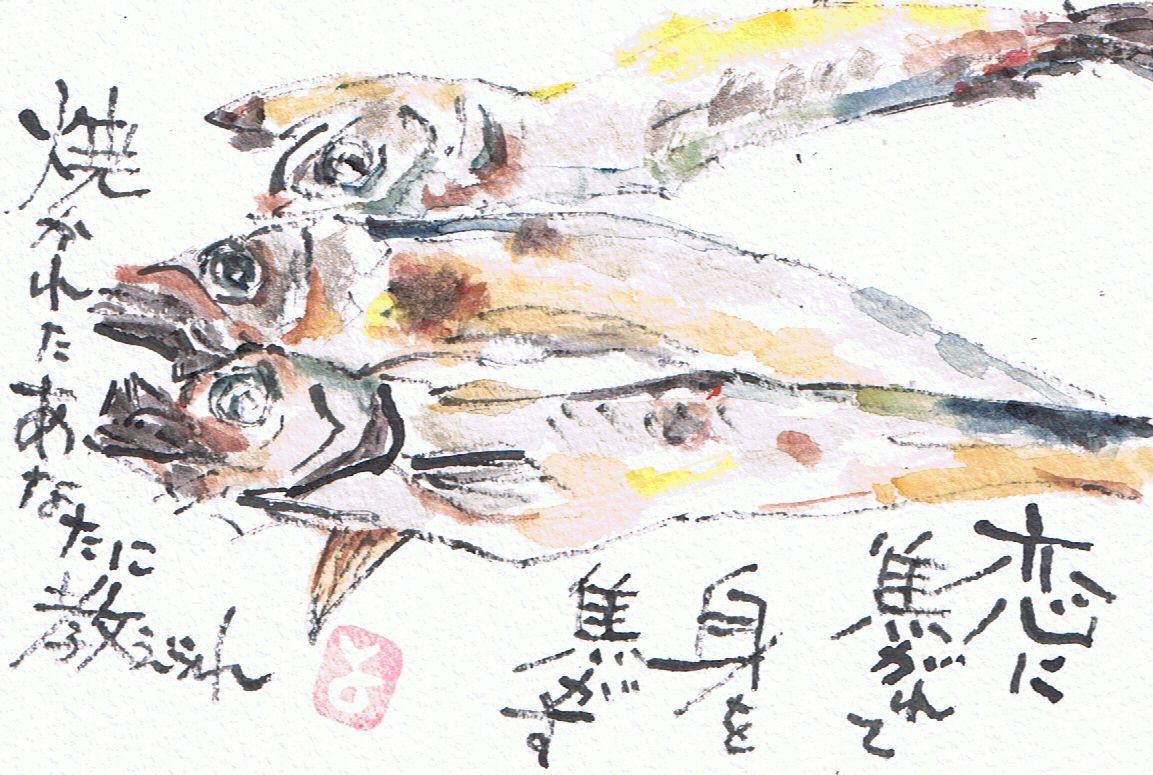 恋に
焦がれて
身を
焦がす
焼かれたあなたに
教えられ